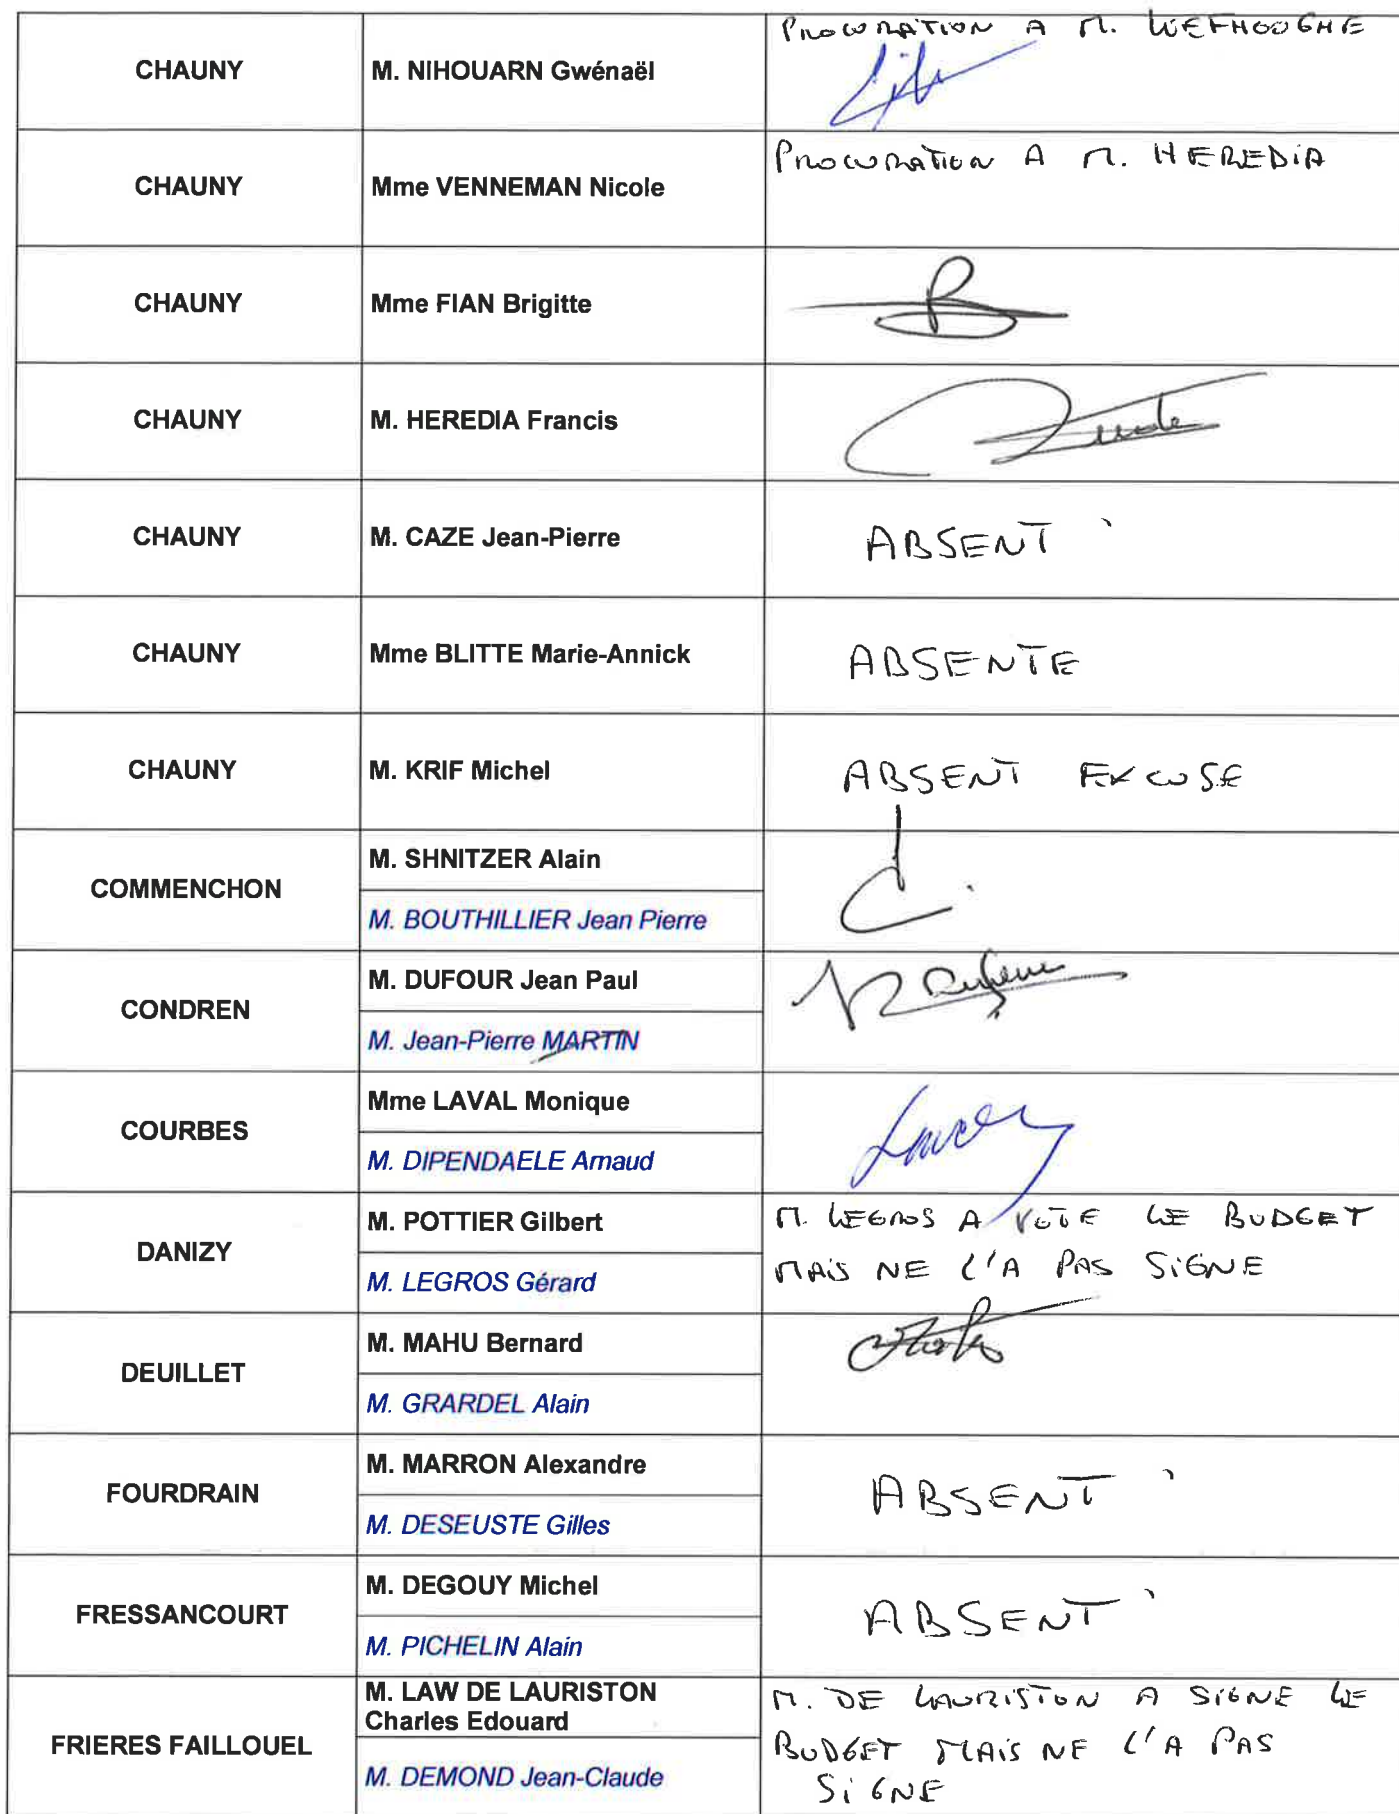 CHAUNY
M. NIHOUARN Gwénaël
PROCURATION A M. LEFHOOGHE
CHAUNY
Mme VENNEMAN Nicole
PROCURATION A M. HEREDIA
CHAUNY
Mme FIAN Brigitte
CHAUNY
M. HEREDIA Francis
CHAUNY
M. CAZE Jean-Pierre
ABSENT
CHAUNY
Mme BLITTE Marie-Annick
ABSENTE
CHAUNY
M. KRIF Michel
ABSENT EXCUSE
COMMENCHON
M. SHNITZER Alain
M. BOUTHILLIER Jean Pierre
CONDREN
M. DUFOUR Jean Paul
M. Jean-Pierre MARTIN
COURBES
Mme LAVAL Monique
M. DIPENDAELE Arnaud
DANIZY
M. POTTIER Gilbert
M. LEGROS Gérard
M. LEGROS A VOTE LE BUDGET
MAIS NE L'A PAS SIGNE
DEUILLET
M. MAHU Bernard
M. GRARDEL Alain
FOURDRAIN
M. MARRON Alexandre
M. DESEUSTE Gilles
ABSENT
FRESSANCOURT
M. DEGOUY Michel
M. PICHELIN Alain
ABSENT
FRIERES FAILLOUEL
M. LAW DE LAURISTON
Charles Edouard
M. DEMOND Jean-Claude
M. DE LAURISTON A SIGNE LE
BUDGET MAIS NE L'A PAS
SIGNE